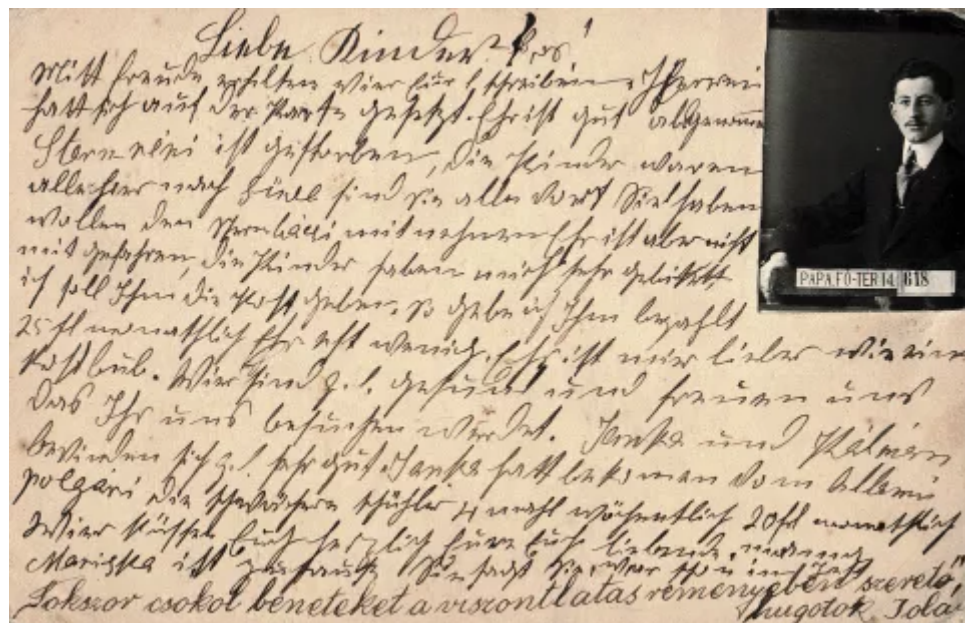 Liebe Kinder!
Mitt freude erhilten wier eur schreiben,
hatt sich auf der Karte gesetzt. Ehr ist gut
Stern néni ist gestorben, die Kinder waren
alle hier nach sind sie alle dort Sie haben
wollen den Stern bácsi mitnehmen Ehr ist aber nicht
mit gefahren, die Kinder haben mich sehr gebittet
ich soll Ihm die Kost geben. So gebe ich Ihm bezahlt
25 fl monathlich Ehr est wenig. Ehr ist mir lieber wie ein
Kostbub. Wier sind g. l. gesund und freuen uns
das Ihr uns besuchen werdet. Janka und Kálmán
befinden sich g. l. sehr gut. Janka hatt bekomen vom Allami
polgári die schwächere schühler 4 mahl wöchentlich 20 fl monathlich
Wier küssen Euch herzlich Eure Euch liebende
Mariska ist zuhause Sie sagt
Sokszor csokol beneteket a viszontlatas remenyeben szerető
hugotok Jola
PAPA, FŐ-TER 14. 618